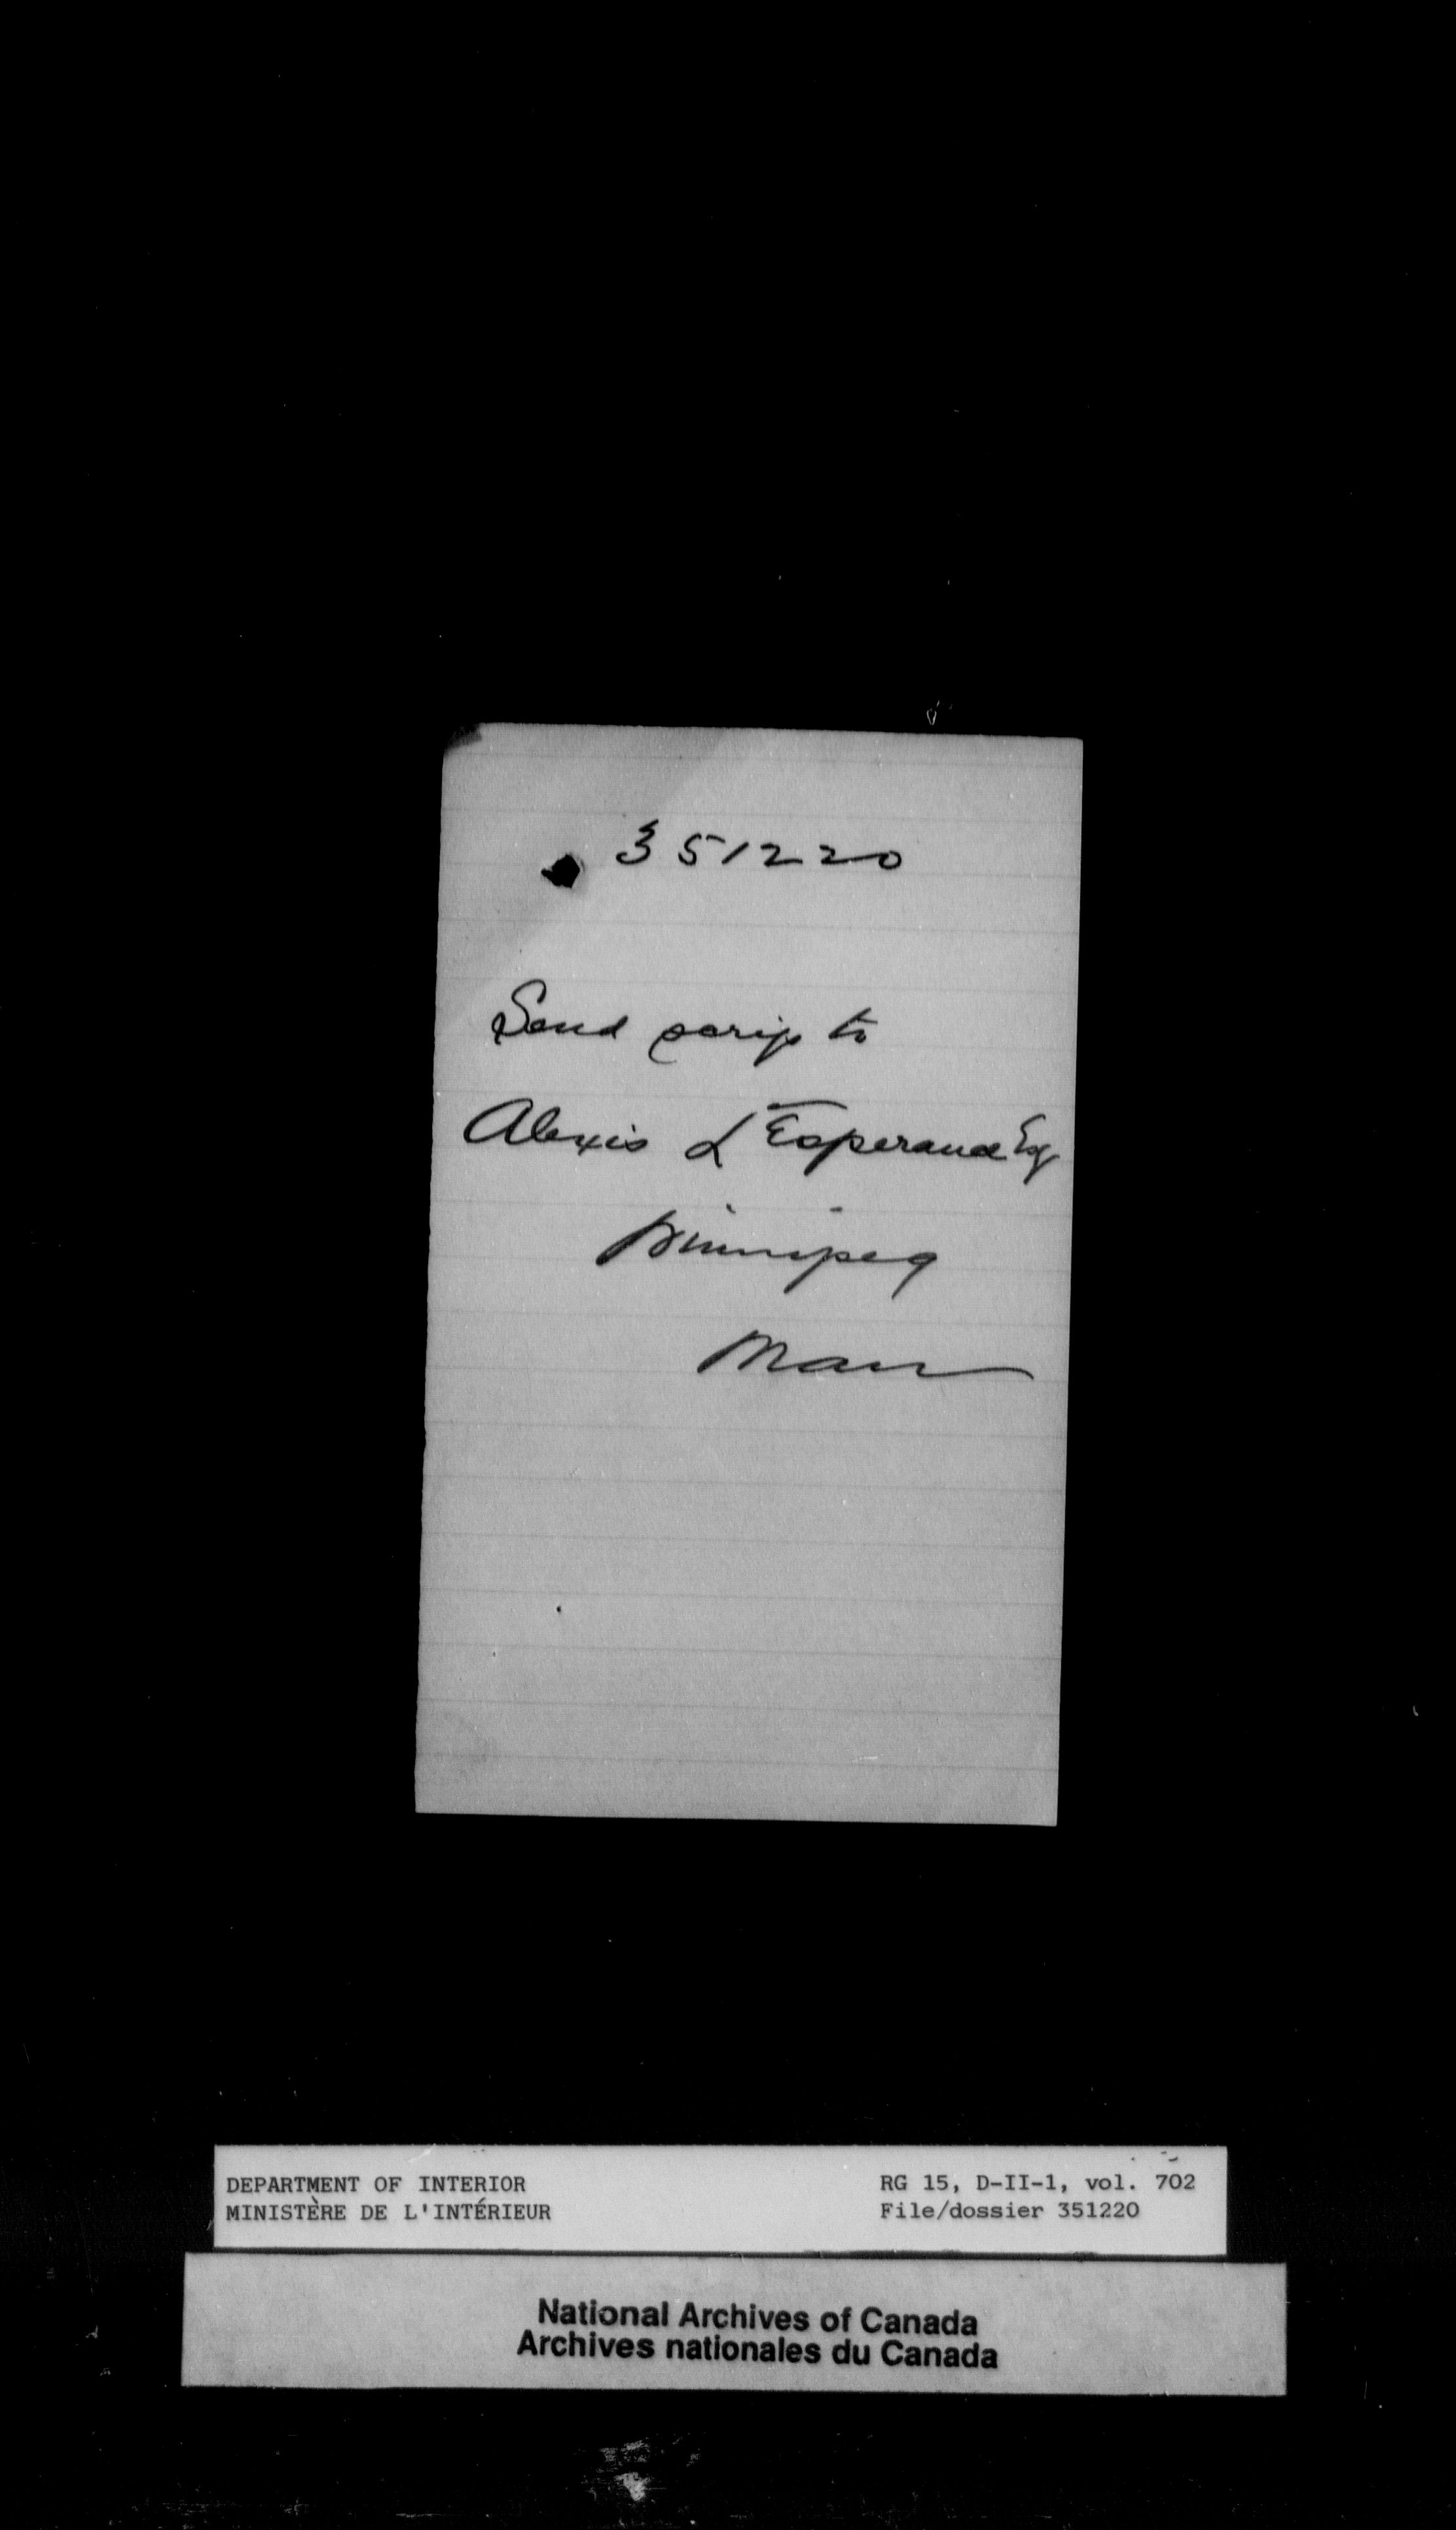 351220
Send scrip to
Alexis L'Esperance Esq
Winnipeg
Man
DEPARTMENT OF INTERIOR
MINISTÈRE DE L'INTÉRIEUR
RG 15, D-II-1, vol. 702
File/dossier 351220
National Archives of Canada
Archives nationales du Canada